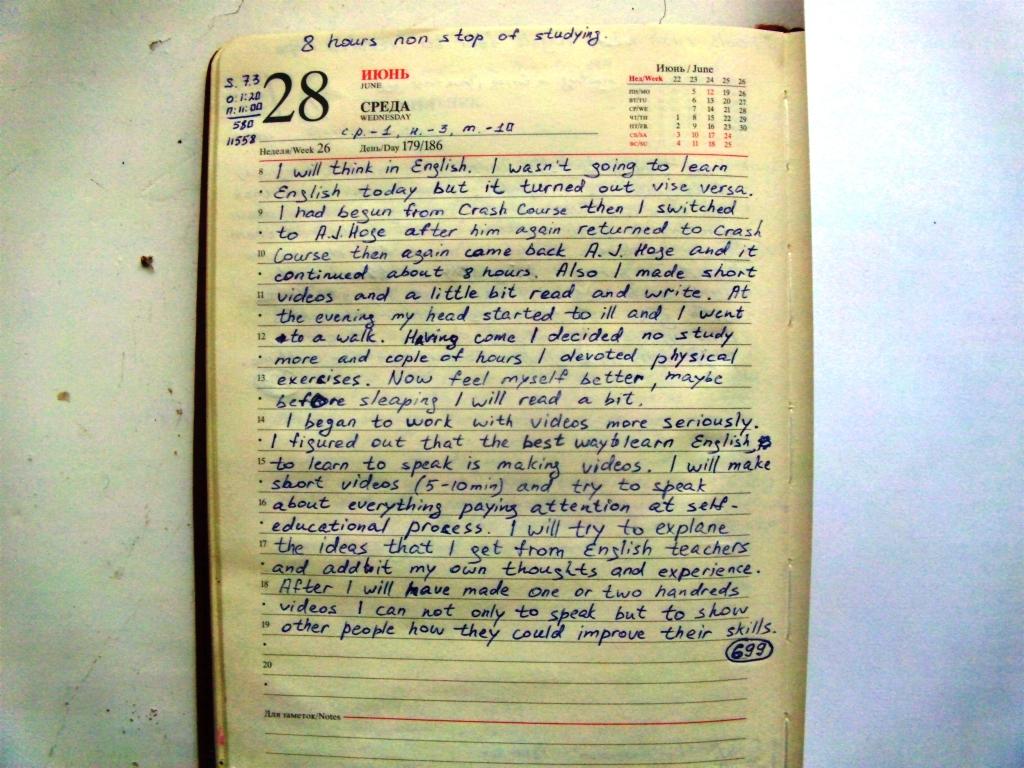 8 hours non stop of studying.
S. 7.3
0:1:20
П:11:00
580
11558
28
ИЮНЬ
JUNE
СРЕДА
WEDNESDAY
с.р.-1, н.-3, т.-10
Неделя/Week 26 День/Day 179/186
Июнь / June
Нед/Week 22 23 24 25 26
ПН/MO 5 12 19 26
ВТ/TU 6 13 20 27
СР/WE 7 14 21 28
ЧТ/TH 1 8 15 22 29
ПТ/FR 2 9 16 23 30
СБ/SA 3 10 17 24
ВС/SU 4 11 18 25
8 I will think in English. I wasn't going to learn
English today but it turned out vise versa.
9 I had begun from Crash Course then I switched
to A.J. Hoge after him again returned to Crash
10 Course then again came back A. J. Hoge and it
continued about 8 hours. Also I made short
11 videos and a little bit read and write. At
the evening my head started to ill and I went
12 to a walk. Having come I decided no study
more and cople of hours I devoted physical
13 exercises. Now feel myself better, maybe
before sleaping I will read a bit.
14 I began to work with videos more seriously.
I figured out that the best way learn English
15 to learn to speak is making videos. I will make
short videos (5-10min) and try to speak
16 about everything paying attention at self-
educational process. I will try to explane
17 the ideas that I get from English teachers
and add it my own thoughts and experience.
18 After I will have made one or two hundreds
videos I can not only to speak but to show
19 other people how they could improve their skills.
699
20
Для заметок/Notes